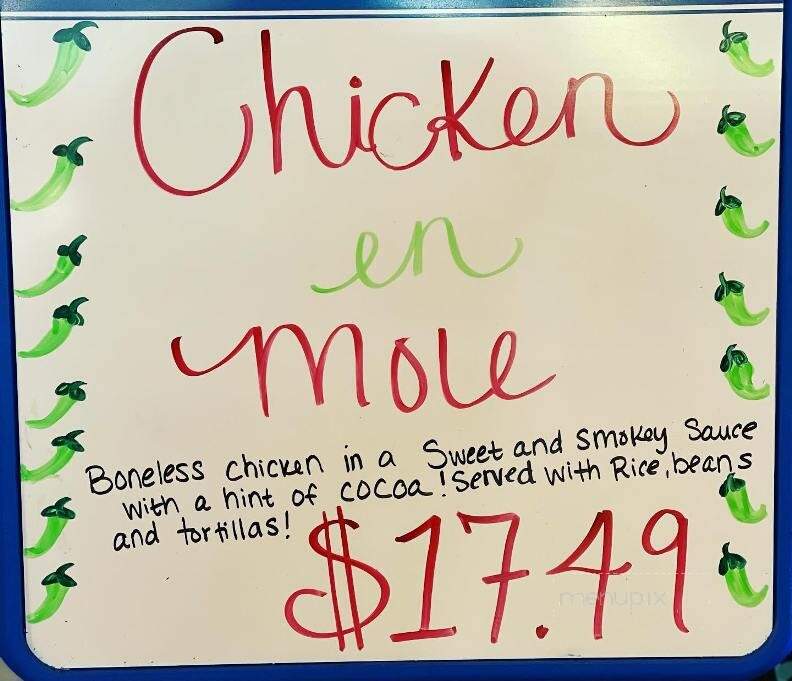 Chicken
en
mole
Boneless chicken in a Sweet and smokey Sauce
with a hint of cocoa! Served with Rice, beans
and tortillas!
$17.49
menupix